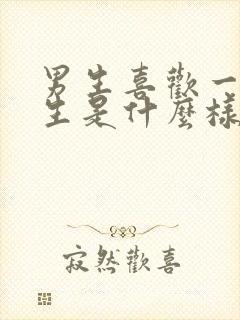 男生喜歡一
生是什麼樣
寂然歡喜